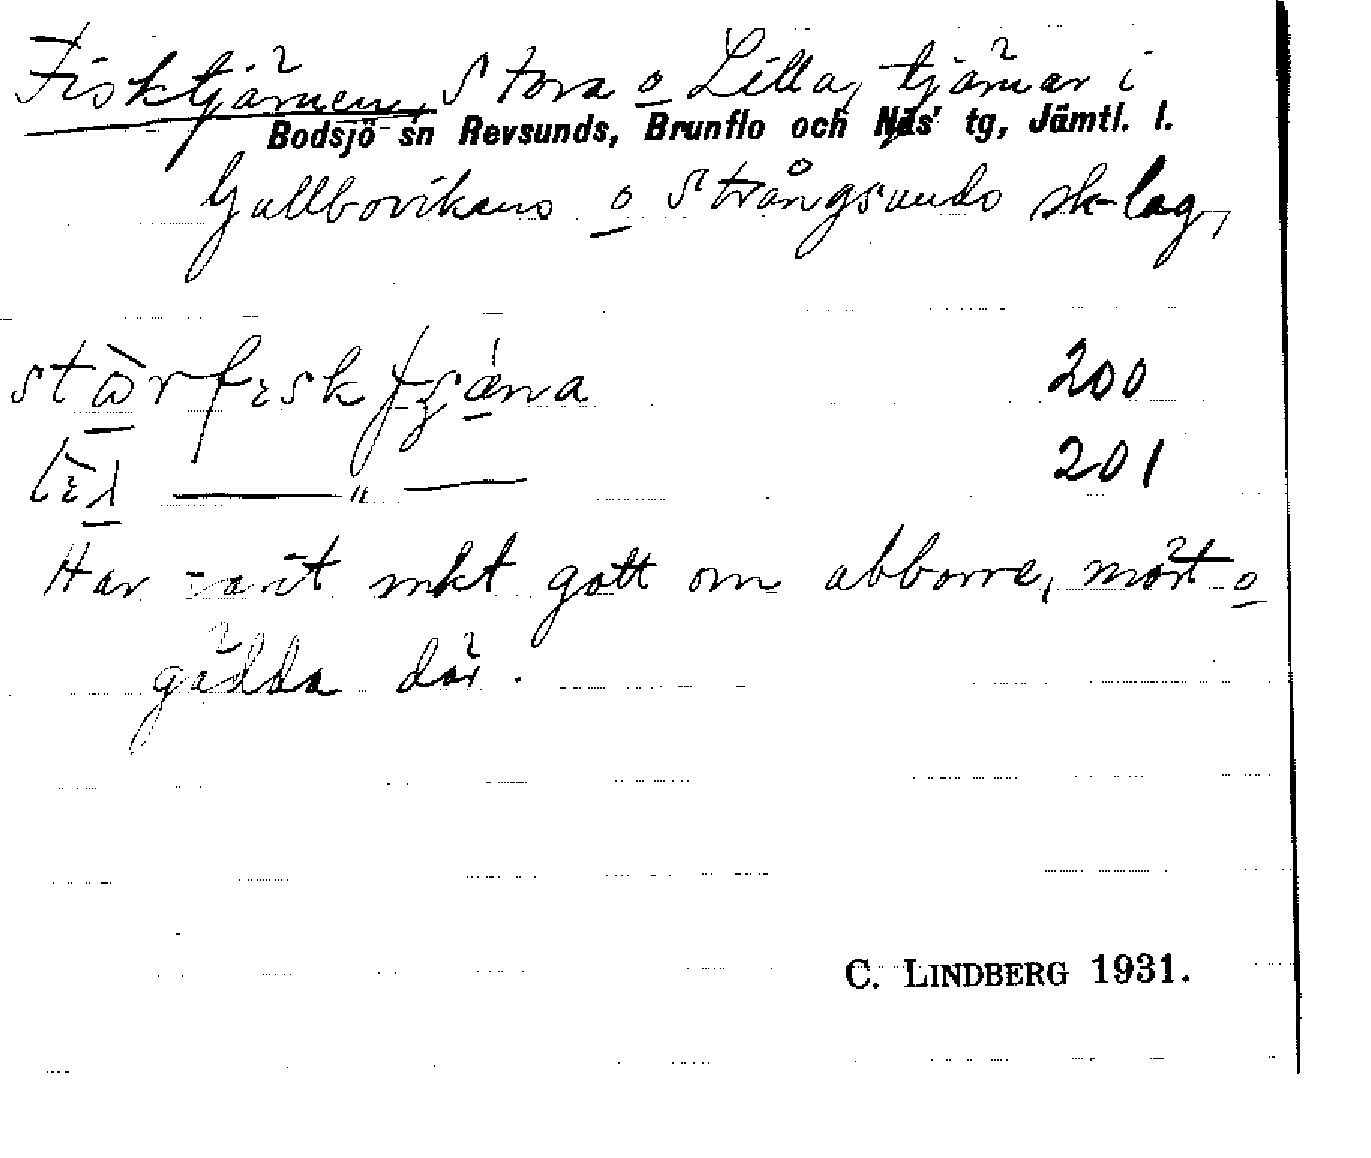 Fisktjärnen, Stora o Lilla, tjärnar i
Bodsjö sn Revsunds, Brunflo och Näs' tg, Jämtl. l.
Gallbovikens o Strångsunds sk-lag,
200
201
Har varit mkt gott om abborre, mört o
gädda där.
C. LINDBERG 1931.